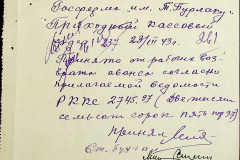 Госферма им. Т. Бурлаку
Приходовой кассовый
ордер 237 29/III 43г.
Принято от рабочих воз-
врата аванса согласно
прилагаемой ведомости
РККС 2745.37 (Две тысячи
семьсот сорок пять руб 37)
Принял
Ст. бухгал